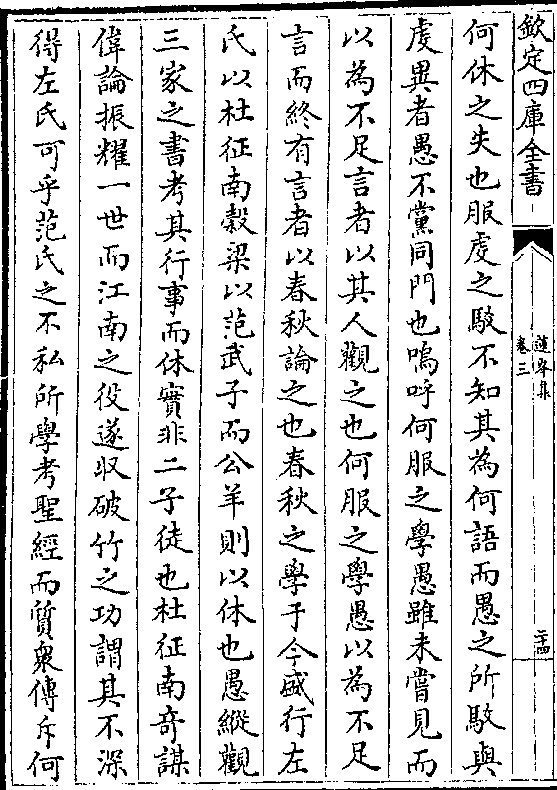 欽定四庫全書
卷三
二十四
何休之失也服䖍之駮不知其為何語而愚之所駮與
䖍異者愚不黨同門也嗚呼何服之學愚雖未嘗見而
以為不足言者以其人觀之也何服之學愚以為不足
言而終有言者以春秋論之也春秋之學于今盛行左
氏以杜征南榖梁以范武子而公羊則以休也愚縱觀
三家之書考其行事而休實非二子徒也杜征南奇謀
偉論振耀一世而江南之役遂収破竹之功謂其不深
得左氏可乎范氏之不私所學考聖經而質衆傳斥何